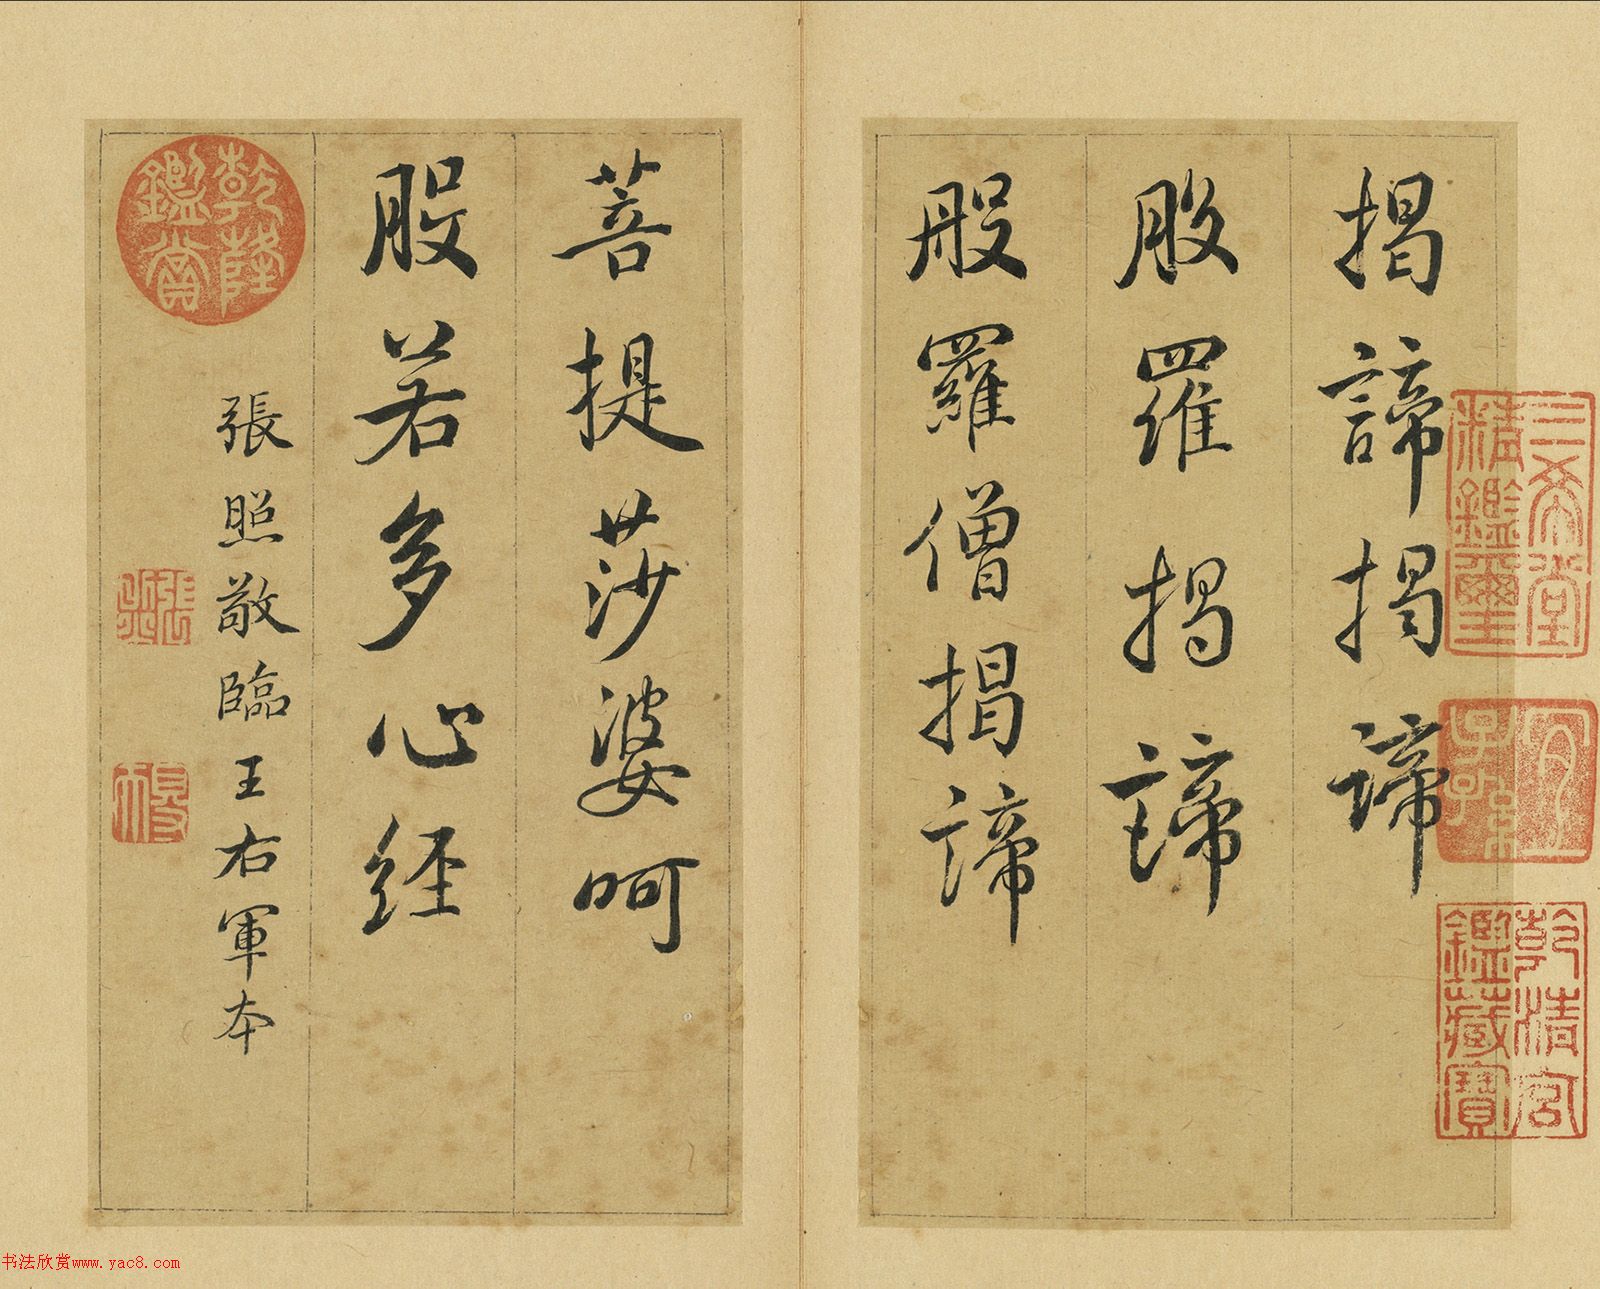 揭諦揭諦
般羅揭諦
般羅僧揭諦
菩提莎婆呵
般若多心經
張照敬臨王右軍本
三希堂精鑑璽
宜子孫
乾清宮鑑藏寶
乾隆鑑賞
張照
书法欣赏www.yac8.com